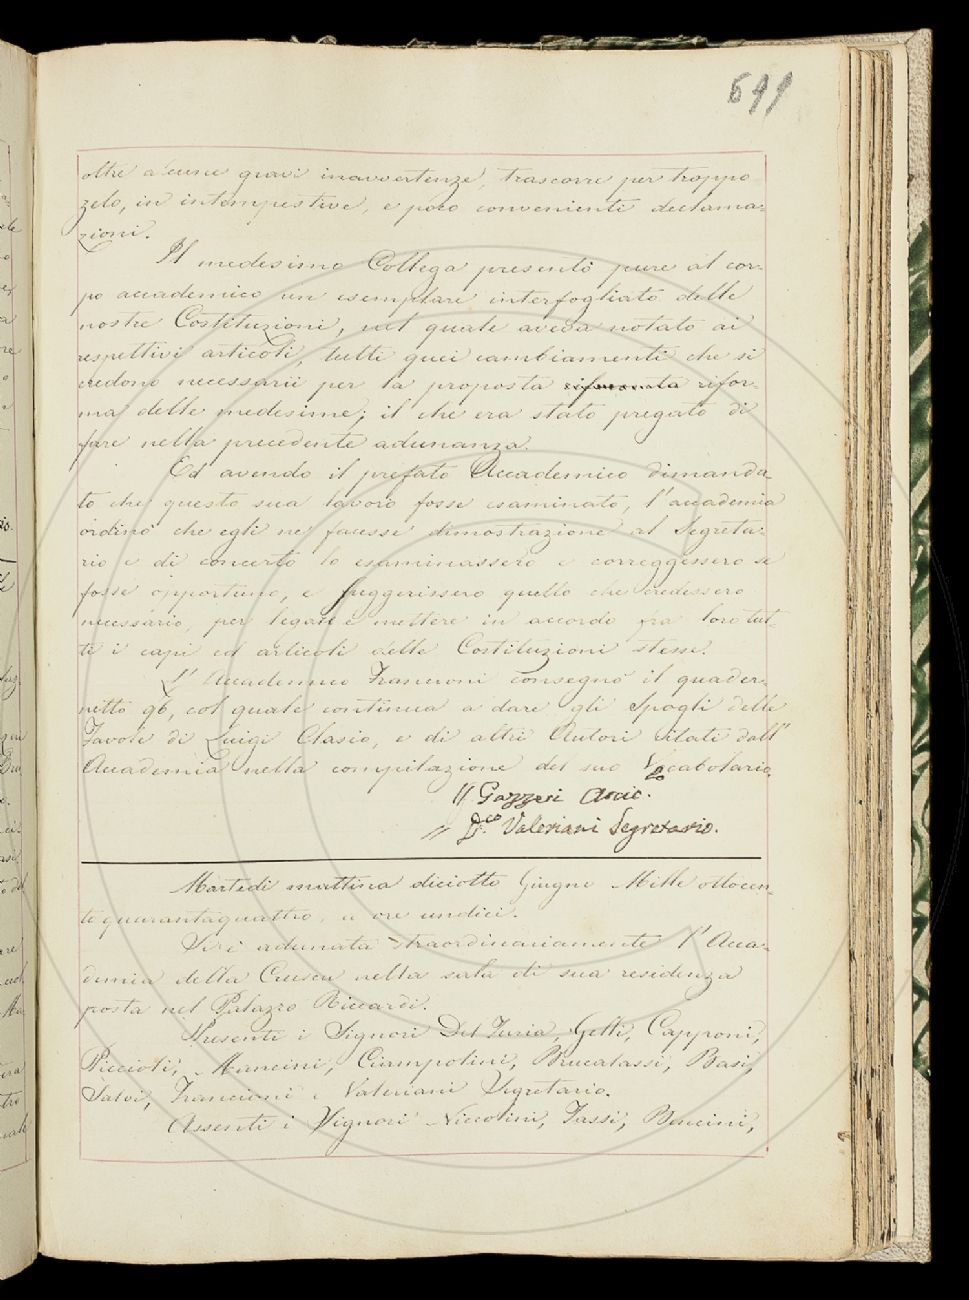 691
oltre alcune gravi inavvertenze, trascorre per troppo
zelo, in intempestive, e poco convenienti declama-
zioni.
Il medesimo Collega presentò pure al cor-
po accademico un esemplare interfogliato delle
nostre Costituzioni, nel quale aveva notato ai
respettivi articoli, tutti quei cambiamenti che si
credono necessarii per la proposta rifor-
ma delle medesime; il che era stato pregato di
fare nella precedente adunanza.
Ed avendo il prefato Accademico dimanda-
to che questo suo lavoro fosse esaminato, l'accademia
ordinò che egli ne facesse dimostrazione al Segreta-
rio e di concerto lo esaminassero e correggessero se
fosse opportuno, e suggerissero quello che credessero
necessario, per legare e mettere in accordo fra loro tut-
ti i capi ed articoli delle Costituzioni stesse.
L' Accademico Francioni consegnò il quader-
netto 96, col quale continua a dare gli Spogli delle
Favole di Luigi Clasio, e di altri Autori citati dall'
Accademia nella compilazione del suo Vocabolario.
// Gazzeri Arcic.
// D.co Valeriani Segretario.
Martedì mattina diciotto Giugno Mille ottocen-
to quarantaquattro, a ore undici.
Si è adunata straordinariamente l'Acca-
demia della Crusca nella sala di sua residenza
posta nel Palazzo Riccardi.
Presenti i Signori Del Furia, Gelli, Capponi,
Piccioli, Mancini, Ciampolini, Brucalassi, Basi,
Salvi, Francioni e Valeriani Segretario.
Assenti i Signori Niccolini, Tassi, Bencini,